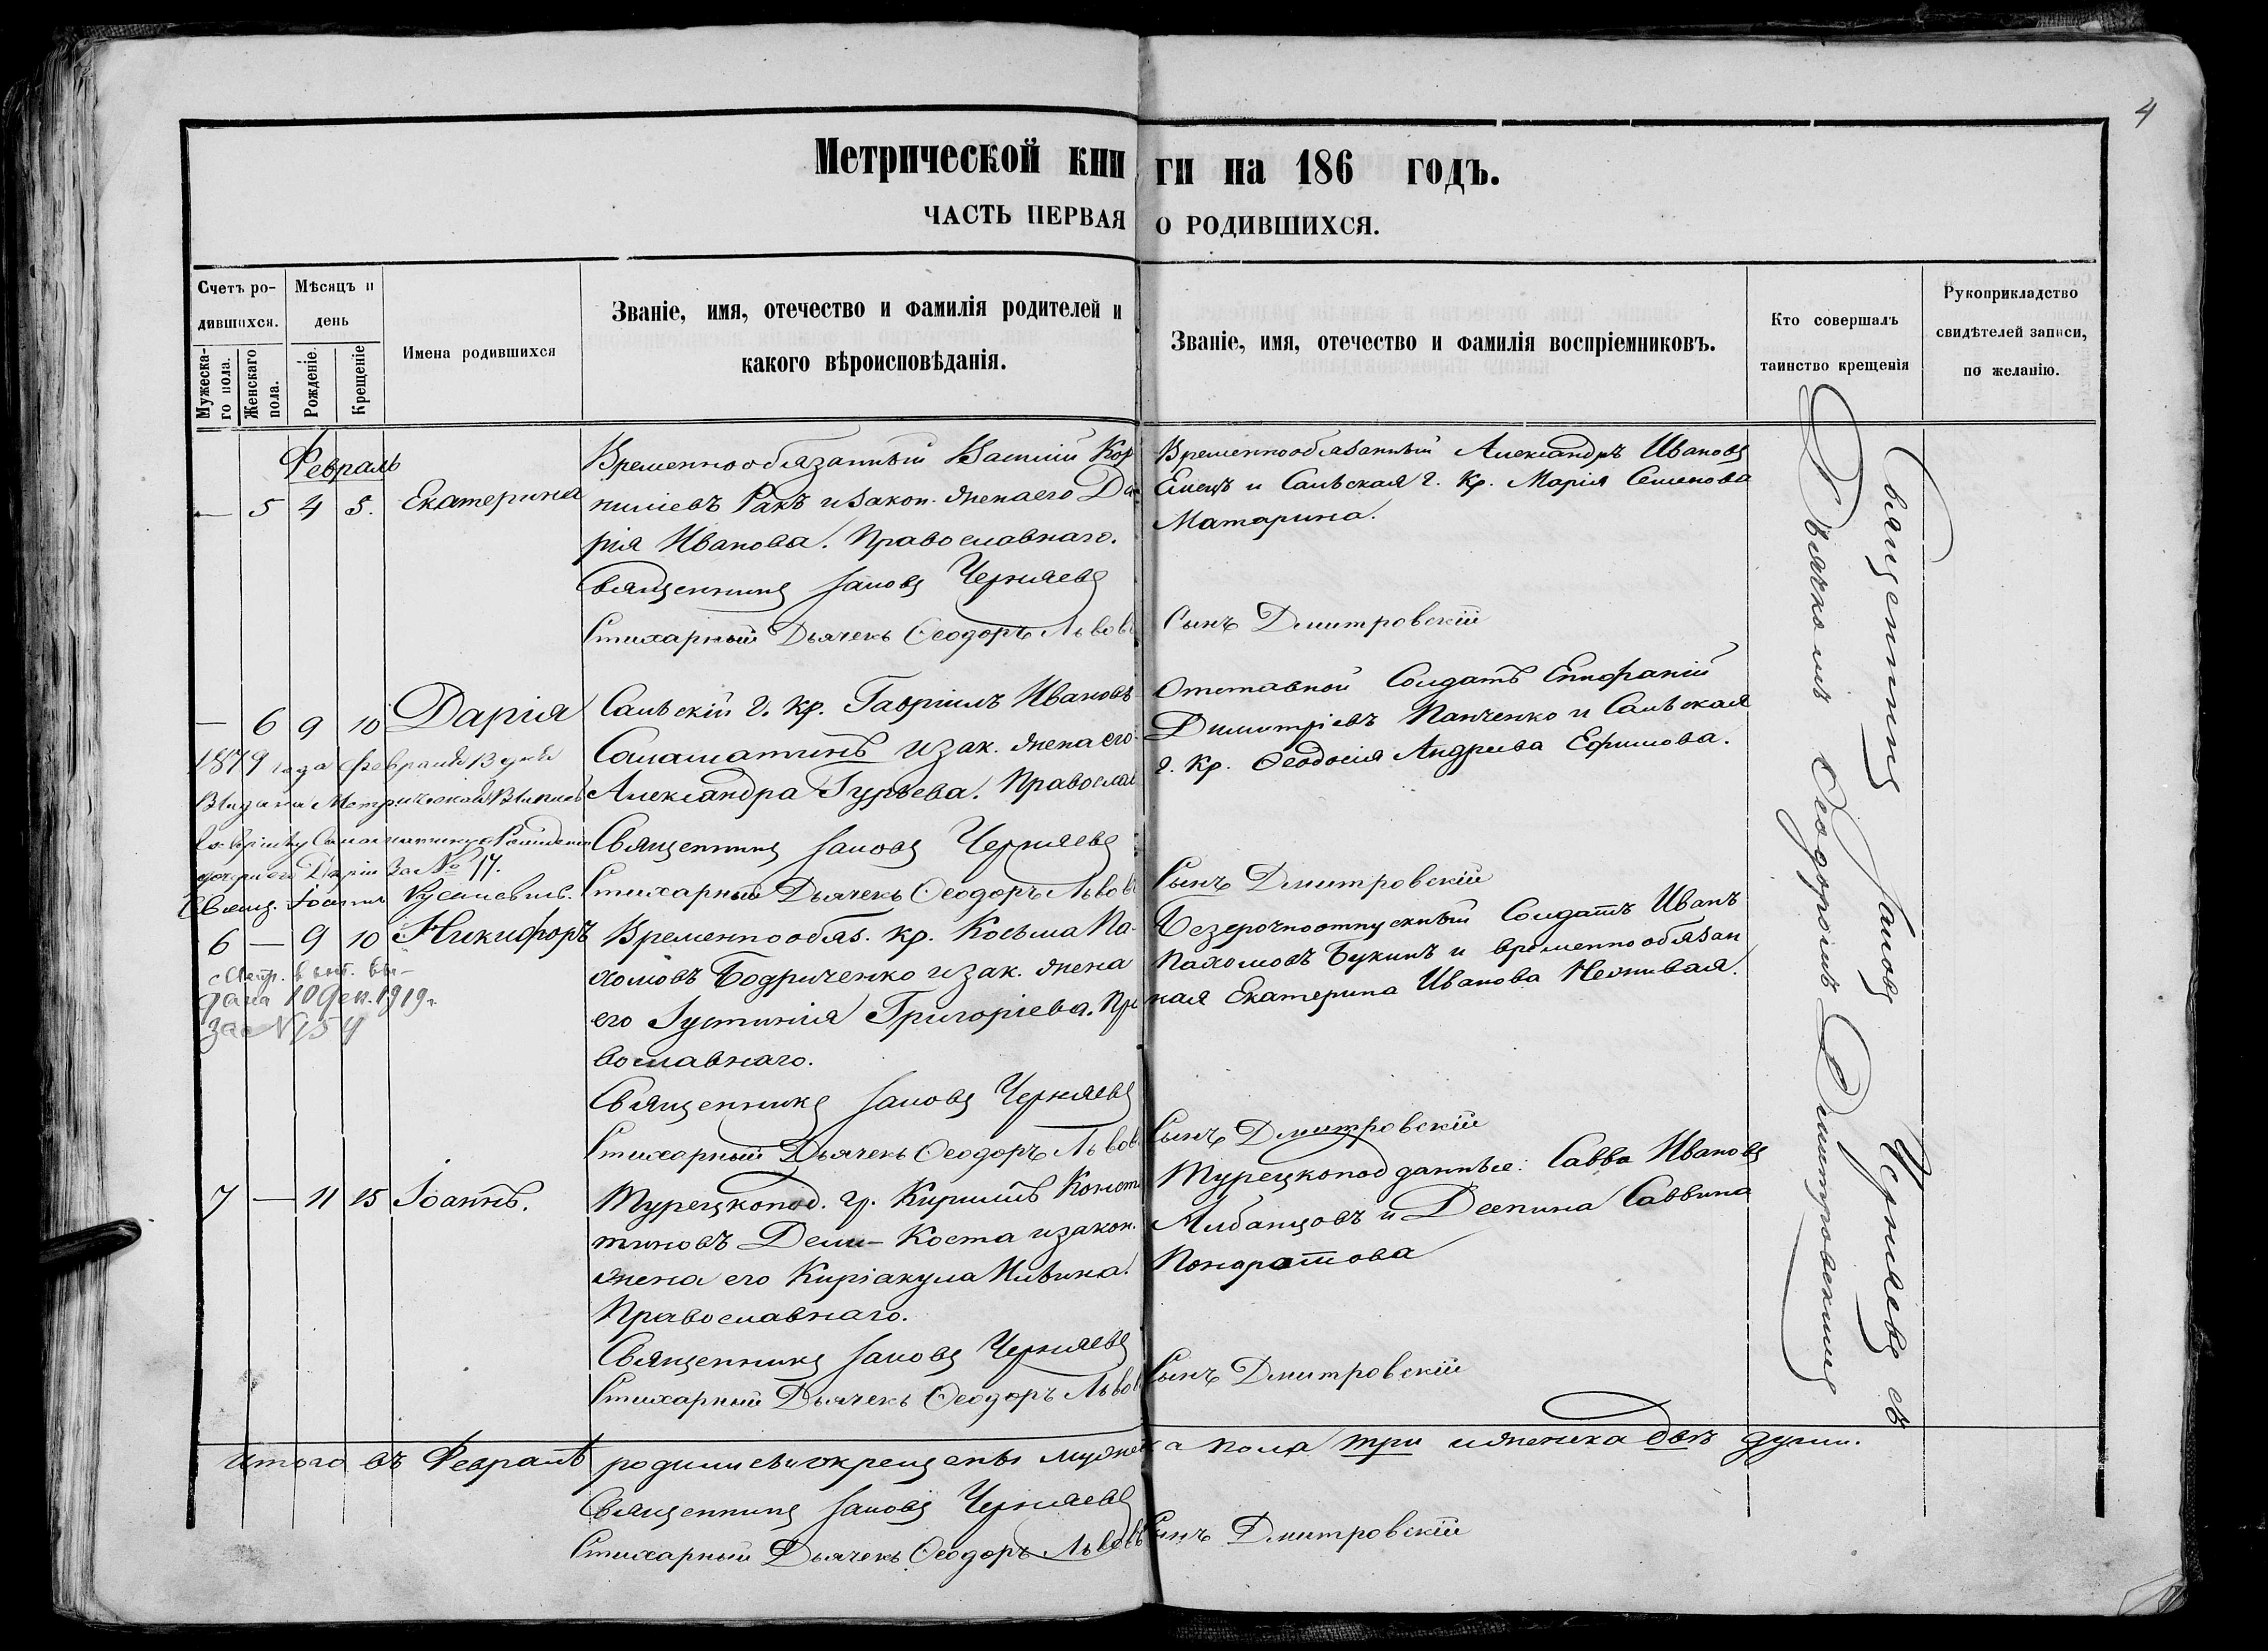 4
Метрической книги на 186 годъ.
ЧАСТЬ ПЕРВАЯ О РОДИВШИХСЯ.
Счетъ родившихся.
Мѣсяцъ и день
Мужескаго пола.
Женскаго пола.
Рожденіе.
Крещеніе
Имена родившихся
Званіе, имя, отечество и фамилія родителей и
какого вѣроисповѣданія.
Званіе, имя, отечество и фамилія воспріемниковъ.
Кто совершалъ
таинство крещенія
Рукоприкладство
свидѣтелей записи,
по желанію.
Февраль
— 5 4 5. Екатерина
Временнообязанный Василій Кор
ниліевъ Ракъ и закон. жена его Да
рія Иванова. Православнаго.
Священникъ Іаковъ Черняевъ
Стихарный Дьячекъ Ѳеодоръ Львовъ
Временнообязанный Александръ Ивановъ
Емецъ и Сальская г. кр. Марія Семенова
Матарина.
Сынъ Дмитровскій
— 6 9 10 Дарія
1879 года февраля 13 дня
Выдана Метрическая Выпись
дочери его Даріи За № 17.
Свящ. Іоаннъ
Сальскій г. кр. Гавріилъ Ивановъ
Саламатинъ и зак. жена его
Александра Гурьева. Православ
Священникъ Іаковъ Черняевъ
Стихарный Дьячекъ Ѳеодоръ Львовъ
Отставной Солдатъ Епифаній
Димитріевъ Панченко и Сальская
г. кр. Ѳеодосія Андреева Ефимова.
Сынъ Дмитровскій
6 — 9 10 Никифоръ
Метр. вып. вы-
дана 10 Ден. 1919 г.
за № 154
Временнообяз. кр. Косьма Па-
хомовъ Бодриченко и зак. жена
его Іустинія Григоріева. Пра
вославнаго.
Священникъ Іаковъ Черняевъ
Стихарный Дьячекъ Ѳеодоръ Львовъ
Безсрочноотпускный Солдатъ Иванъ
Пахомовъ Букинъ и временнообязан
ная Екатерина Иванова
Сынъ Дмитровскій
7 — 11 15 Іоаннъ.
Турецкопод. гр. Кириллъ Конст
тиновъ Дели-Коста и закон.
жена его Киріакула Ильина.
Православнаго.
Священникъ Іаковъ Черняевъ
Стихарный Дьячекъ Ѳеодоръ Львовъ
Турецкоподданные: Савва Ивановъ
Албанцовъ и Деспина Саввина
Понаратова
Сынъ Дмитровскій
Священникъ Іаковъ Черняевъ съ
Дьячкомъ Ѳеодоромъ Димитровскимъ
Итого въ Февралѣ родились и окрещены мужеска пола три и женска двѣ души.
Священникъ Іаковъ Черняевъ
Стихарный Дьячекъ Ѳеодоръ Львовъ Сынъ Дмитровскій